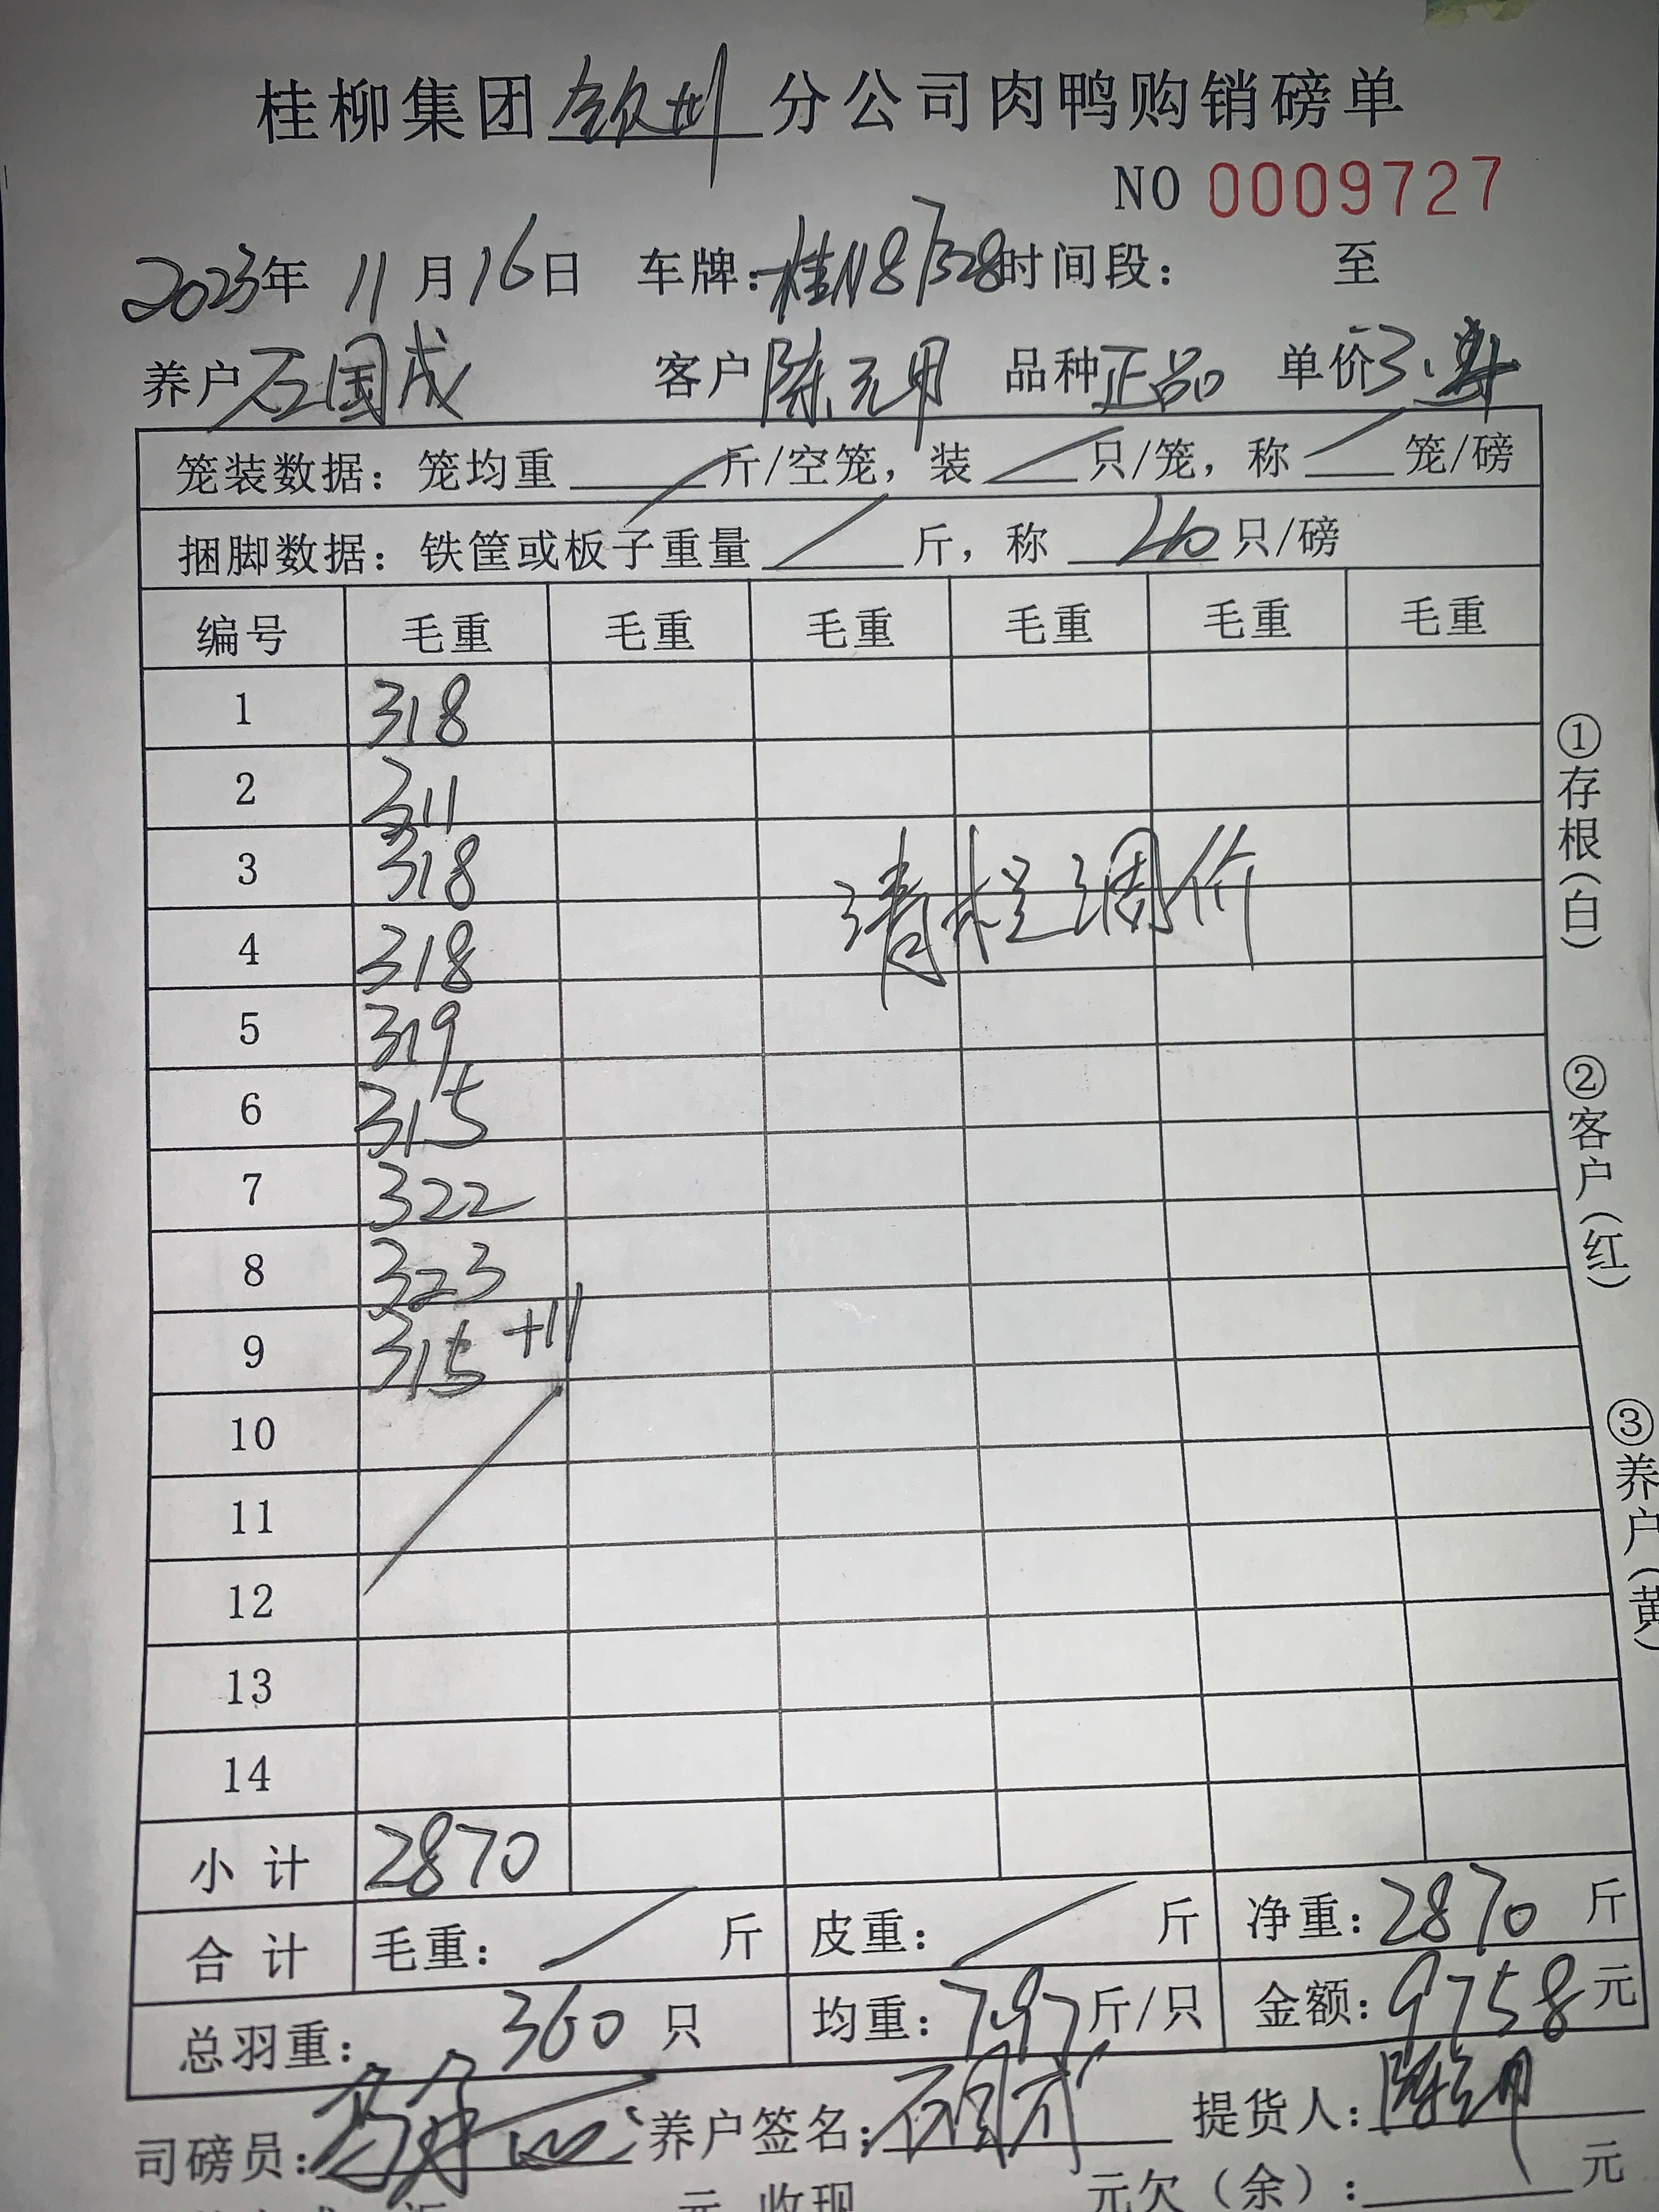 桂柳集团钦州分公司肉鸭购销磅单
NO 0009727
2023年 11月16日 车牌:桂N87328时间段: 至
养户石国成 客户陈元明 品种正品 单价3.
笼装数据: 笼均重 斤/空笼, 装 只/笼, 称 笼/磅
捆脚数据: 铁筐或板子重量 斤, 称 40 只/磅
编号 毛重 毛重 毛重 毛重 毛重 毛重
1 318
2 311
3 318
请按调价
4 318
5 319
6 315
7 322
8 323
9 315 +11
10
11
12
13
14
小计 2870
合计 毛重: 斤 皮重: 斤 净重: 2870 斤
总羽重: 360 只 均重: 7.97斤/只 金额: 9758元
司磅员: 养户签名: 石国成 提货人: 陈元明
元 收现 元欠(余): 元
①存根(白)
②客户(红)
③养户(黄)